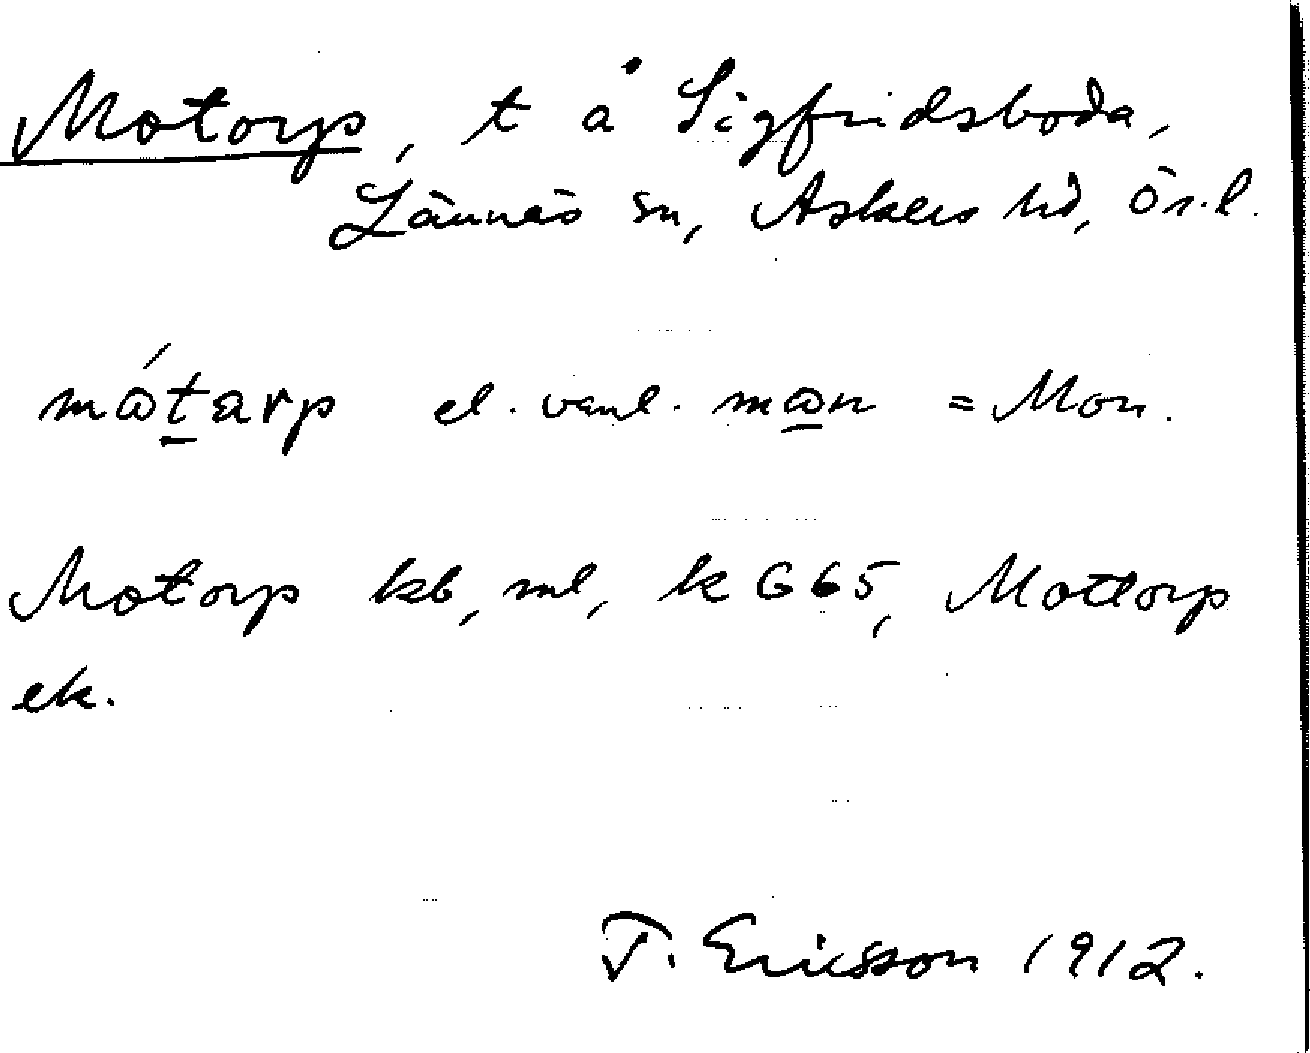 Motorp, t å Sigfridsboda,
Lännäs sn, Askers hd, Ör.l.
mɷ́tarp el. vanl. mɷn = Mon.
Motorp kb, ml, k G65, Mottorp
ek.
T. Ericsson 1912.